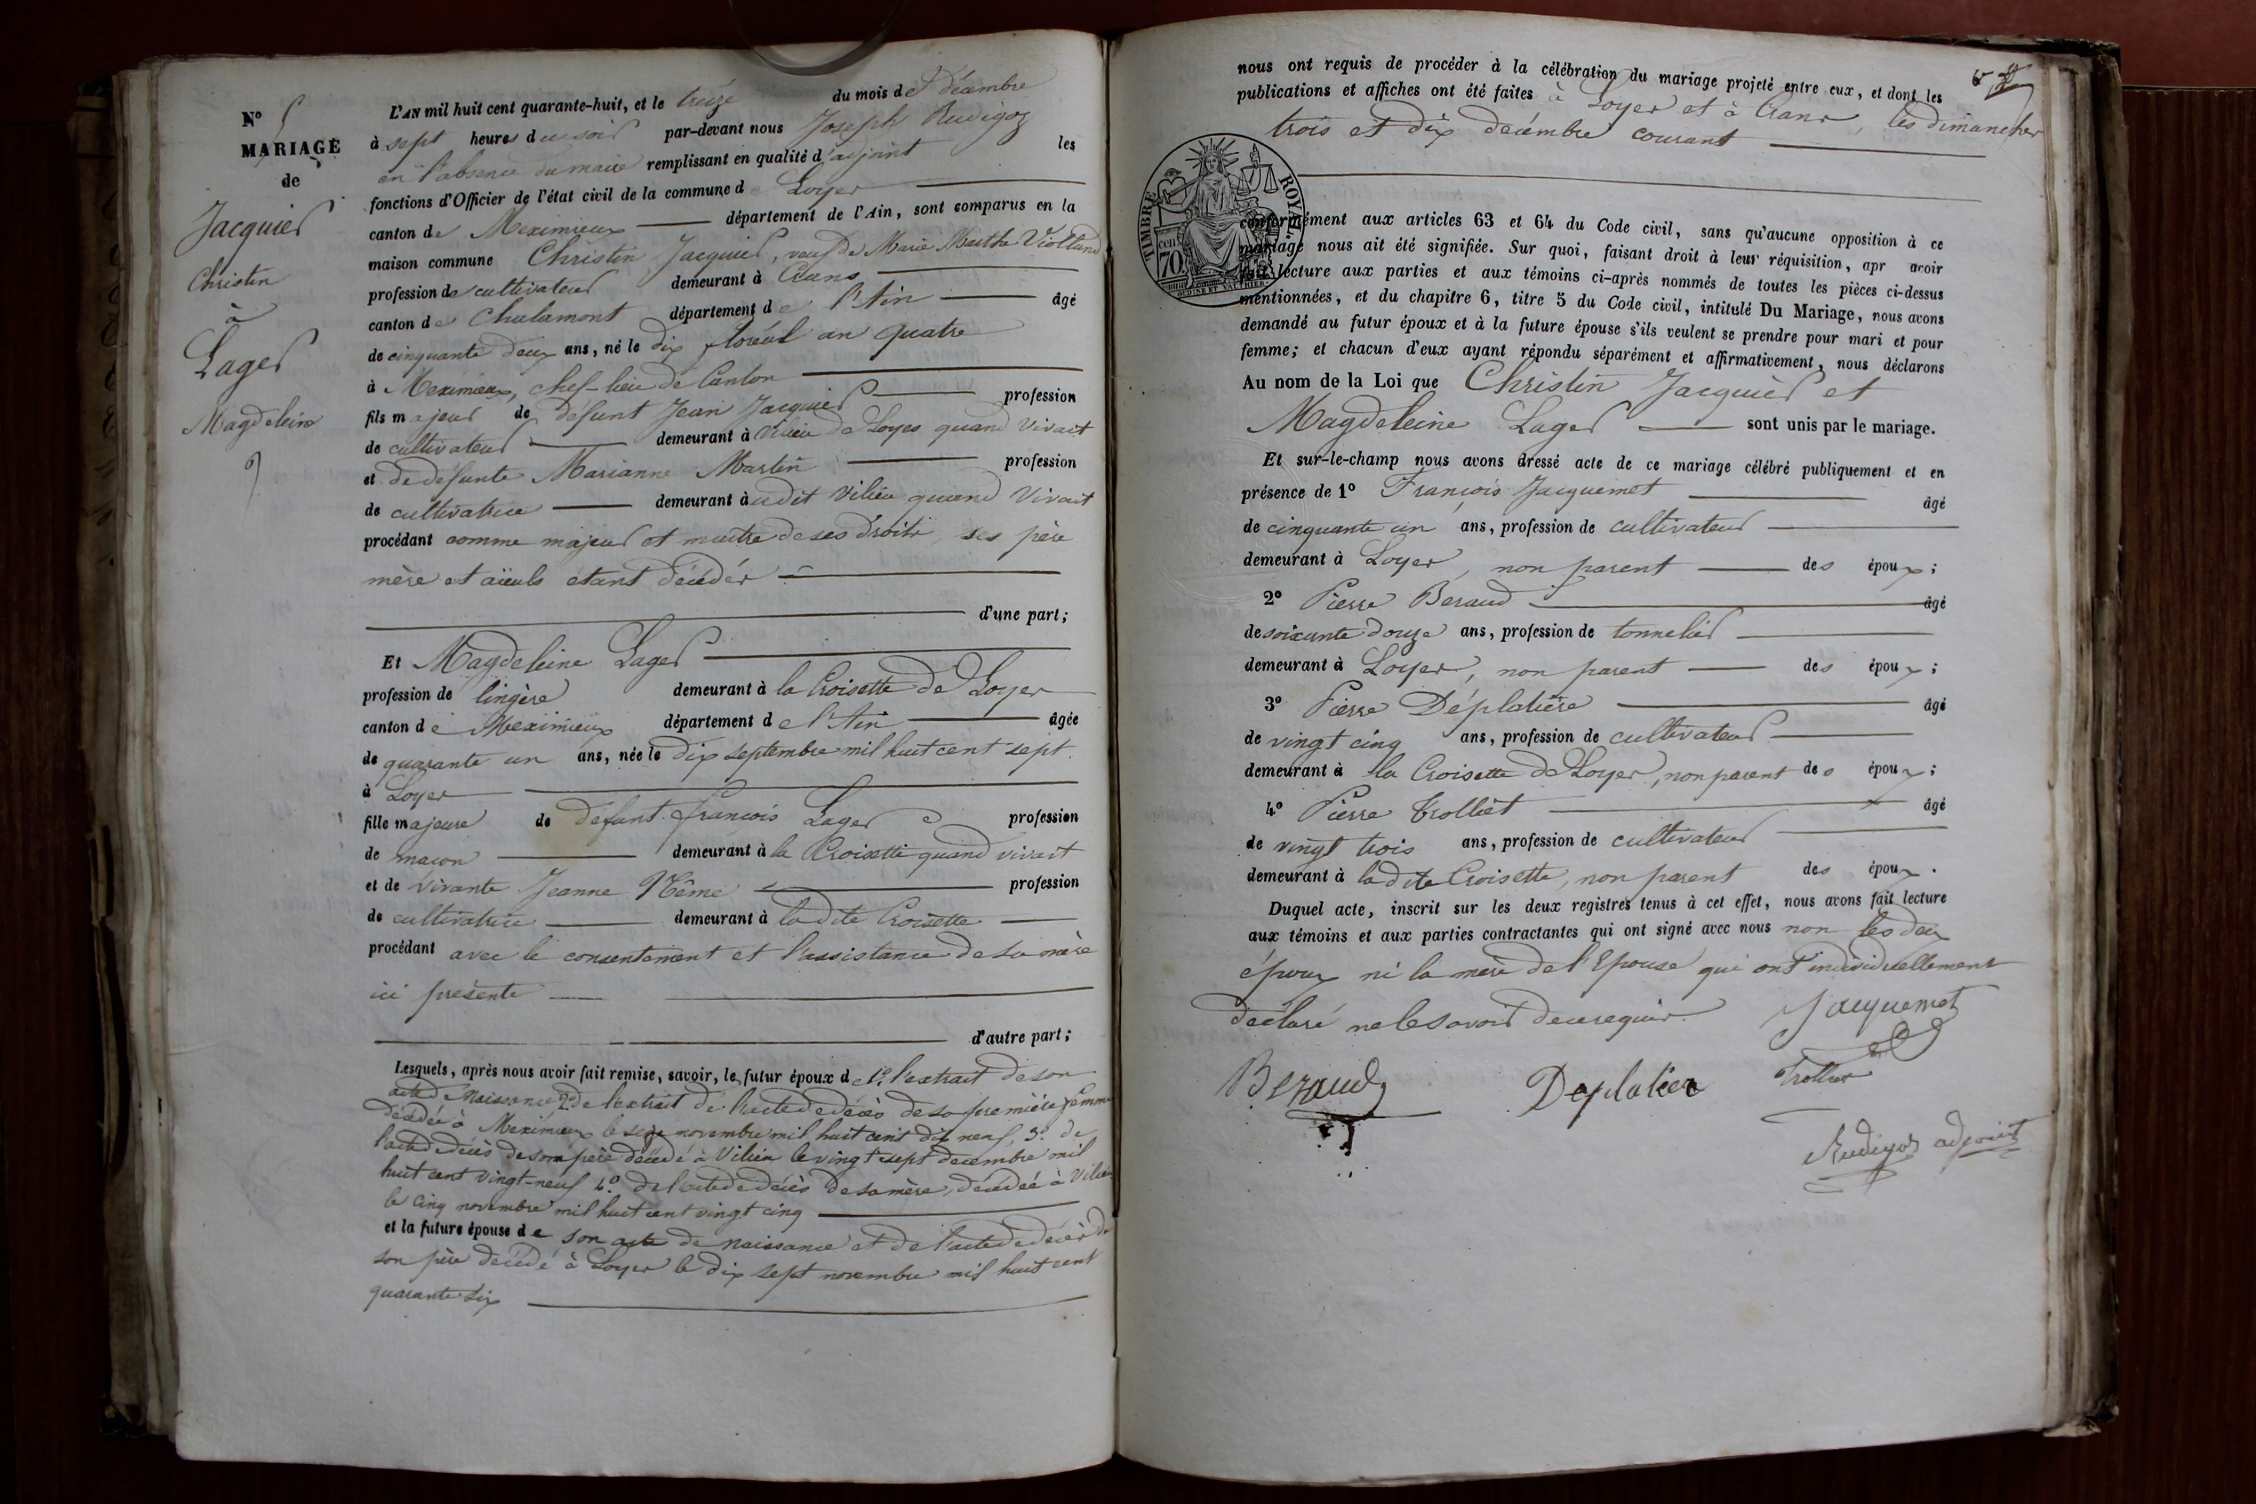 N° 5
MARIAGE
de
Jacquier
Christin
à
Lager
Magdeleine
L'AN mil huit cent quarante-huit, et le treize du mois de Décembre
à sept heures du soir par-devant nous Joseph Rudigoz
en l'absence du maire remplissant en qualité d'adjoint les
fonctions d'Officier de l'état civil de la commune de Loyes
canton de Meximieux département de l'Ain, sont comparus en la
maison commune Christin Jacquier, veuf de Marie Marthe Violland
profession de cultivateur demeurant à Crans
canton de Chalamont département de l'Ain âgé
de cinquante deux ans, né le dix floréal an quatre
à Meximieux, chef-lieu de Canton
fils majeur de défunt Jean Jacquier profession
de cultivateur demeurant à Vilieu de Loyes quand vivait
et de défunte Marianne Martin profession
de cultivatrice demeurant audit Vilieu quand vivait
procédant comme majeur et maître de ses droits, ses père
mère et aïeuls étant décédés
d'une part;
Et Magdeleine Lager
profession de lingère demeurant à la Croisette de Loyes
canton de Meximieux département de l'Ain âgée
de quarante un ans, née le dix septembre mil huit cent sept
à Loyes
fille majeure de défunt françois Lager profession
de maçon demeurant à la Croisette quand vivait
et de vivante Jeanne Même profession
de cultivatrice demeurant à ladite Croisette
procédant avec le consentement et l'assistance de sa mère
ici présente
d'autre part;
Lesquels, après nous avoir fait remise, savoir, le futur époux de 1° l'extrait de son
acte de Naissance 2° de l'extrait de l'acte de décès de sa première femme
décédée à Meximieux le seize novembre mil huit cent dix neuf, 3° de
l'acte de décès de son père décédé à Vilieu le vingt sept decembre mil
huit cent vingt-neuf 4° de l'acte de décès de sa mère, décédée à Vilieu
le cinq novembre mil huit cent vingt cinq
et la future épouse de son acte de naissance et de l'acte de décès de
son père décédé à Loyes le dix sept novembre mil huit cent
quarante six
nous ont requis de procéder à la célébration du mariage projeté entre eux, et dont les
publications et affiches ont été faites à Loyes et à Crans, les dimanches
trois et dix decémbre courant
TIMBRE ROYAL
70 cen
conformément aux articles 63 et 64 du Code civil, sans qu'aucune opposition à ce
mariage nous ait été signifiée. Sur quoi, faisant droit à leur réquisition, apr avoir
fait lecture aux parties et aux témoins ci-après nommés de toutes les pièces ci-dessus
mentionnées, et du chapitre 6, titre 5 du Code civil, intitulé Du Mariage, nous avons
demandé au futur époux et à la future épouse s'ils veulent se prendre pour mari et pour
femme; et chacun d'eux ayant répondu séparément et affirmativement, nous déclarons
Au nom de la Loi que Christin Jacquier et
Magdeleine Lager sont unis par le mariage.
Et sur-le-champ nous avons dressé acte de ce mariage célébré publiquement et en
présence de 1° François Jacquemet âgé
de cinquante un ans, profession de cultivateur
demeurant à Loyes, non parent des époux;
2° Pierre Beraud âgé
de soixante douze ans, profession de tonnelier
demeurant à Loyes, non parent des époux;
3° Pierre Déplatière âgé
de vingt cinq ans, profession de cultivateur
demeurant à la Croisette de Loyes, non parent des époux;
4° Pierre Trolliet âgé
de vingt trois ans, profession de cultivateur
demeurant à ladite Croisette, non parent des époux.
Duquel acte, inscrit sur les deux registres tenus à cet effet, nous avons fait lecture
aux témoins et aux parties contractantes qui ont signé avec nous non les deux
époux ni la mère de l'Epouse qui ont individuellement
déclaré ne le savoir de ce requis.
Jacquemet
Beraud Deplatier Trolliet
Rudigoz adjoint